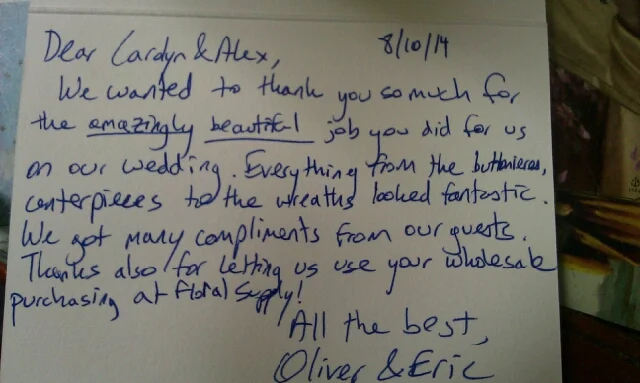 Dear Carolyn & Alex, 8/10/14
We wanted to thank you so much for
the amazingly beautiful job you did for us
on our wedding. Everything from the buttonieres,
centerpieces to the wreaths looked fantastic.
We got many compliments from our guests.
Thanks also for letting us use your wholesale
purchasing at Floral Supply!
All the best,
Oliver & Eric